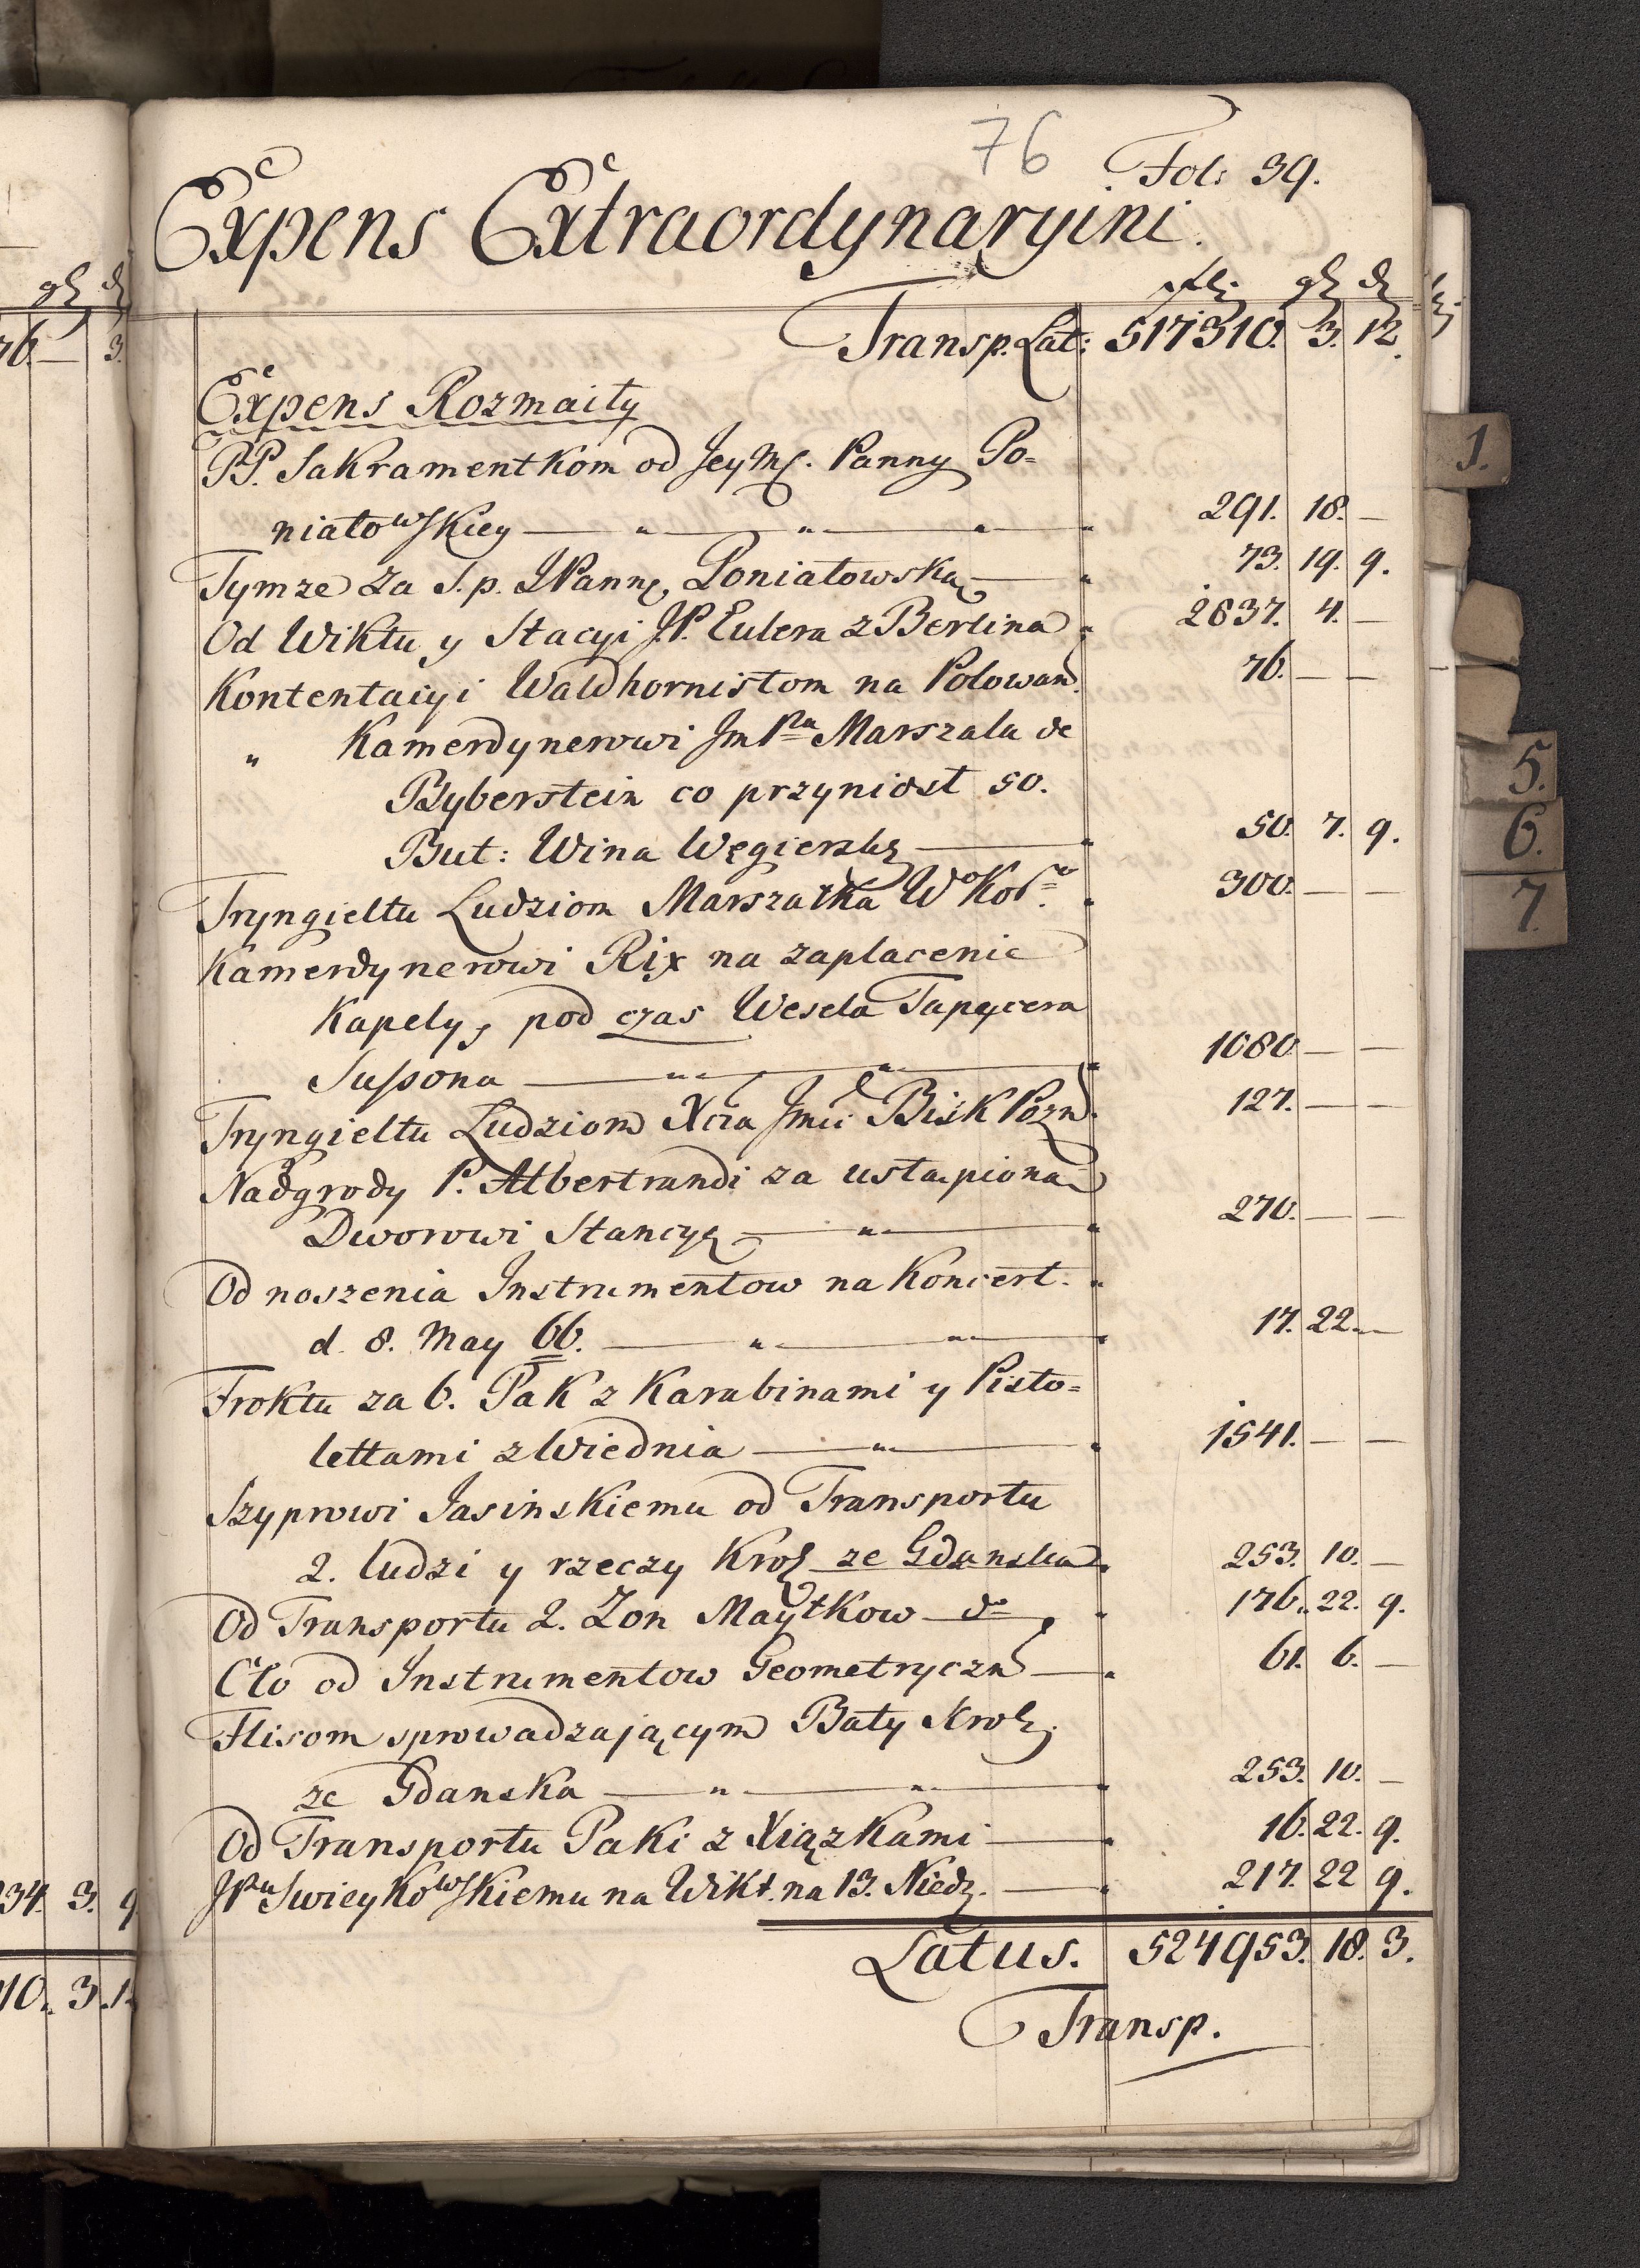 gr d
76. — 3.
34. 3. 9
10. 3. 1
76 Fol: 39.
Expens Extraordynaryini.
fl: gr d
Transp. Lat: 517310. 3. 12.
Expens Rozmaity
PP. Sakramentkom od Jey Mc. Panny Po=
niatowskiey — " — " — " — " 291. 18. —
Tymze za S. p. JPannę Poniatowską — " 73. 19. 9.
Od Wiktu y Stacyi J.P. Eulera z Berlina " 2637. 4. —
Kontentacyi Waldhornistom na Polowan. 76. — —
" Kamerdynerowi Jm Pna Marszala de
Byberstein co przyniost 50.
But: Wina Węgiersk — " 50. 7. 9.
Tryngieltu Ludziom Marszatka Wo Koro. " 300. — —
Kamerdynerowi Rix na zaplacenie
Kapely, pod czas Wesela Tapycera
Sussona — " — " — " 1080 — —
Tryngieltu Ludziom Xcia Jmci Bisk Pozn. 127. — —
Nadgrody P. Albertrandi za ustąpioną
Dworowi Stancyą — " — " 270. — —
Od noszenia Instrumentow na Koncert. "
d. 8. May 66. — " — " — " 17. 22. —
Froktu za 6. Pak z Karabinami y Pisto=
lettami z Wiednia — " — " 1541. — —
Szyprowi Jasinskiemu od Transportu
2. ludzi y rzeczy Krol ze Gdanska " 253. 10. —
Od Transportu 2. Zon Maytkow do " 176. 22. 9.
Cło od Instrumentow Geometryczn — " 61. 6. —
Flisom sprowadzającym Baty Krol.
ze Gdanska — " — " — " 253. 10. —
Od Transportu Paki z Xiązkami — " 16. 22. 9.
JPnu Swieykowskiemu na Wikt. na 13. Niedz. — " 217. 22 9.
Latus. 524953. 18. 3.
Transp.
1.
5.
6.
7.